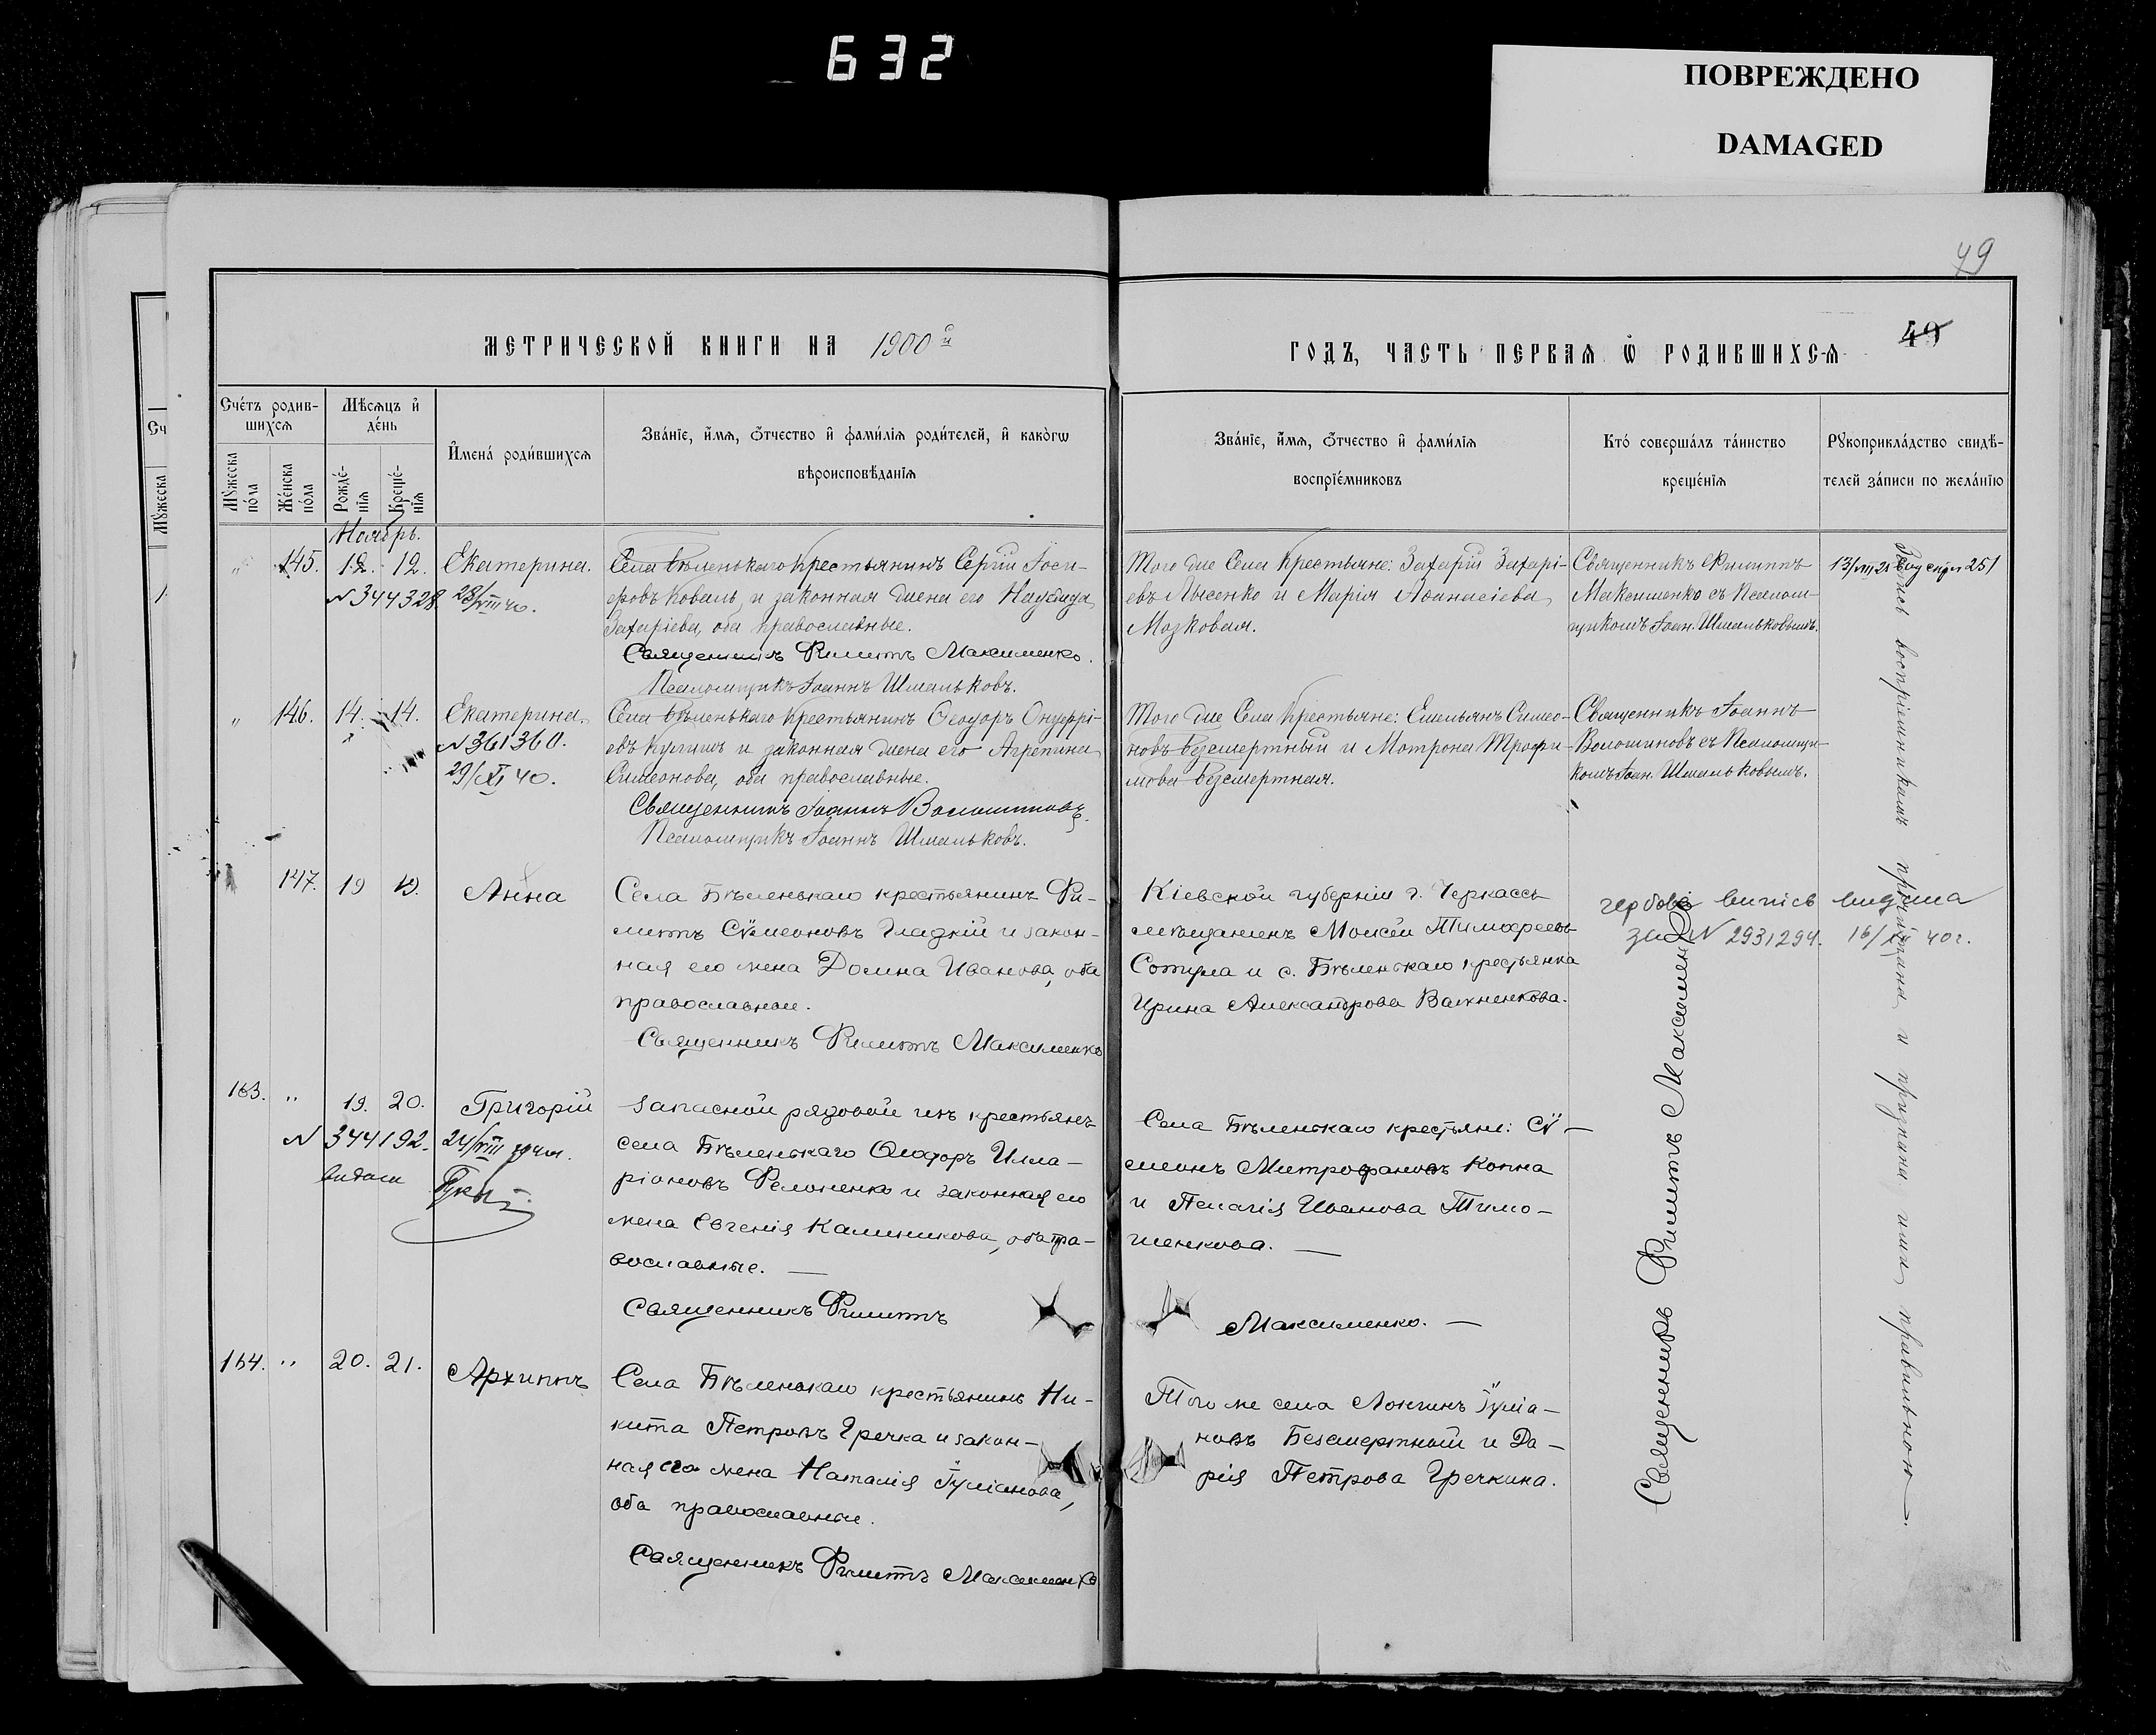 632
ПОВРЕЖДЕНО
DAMAGED
49
49
МЕТРИЧЕСКОЙ КНИГИ НА 1900й
ГОДЪ, ЧАСТЬ ПЕРВАЯ Ѡ РОДИВШИХСЯ
Счéтъ родив-
шихся
Мѣсяцъ и҆
дéнь
Мужеска
пóла
Жéнска
пóла
Рождé-
нїя
Крещé-
нїя
И҆мена́ роди́вшихся
Звáнїе, и҆́мя, ѻ҆́тчество и҆ фами́лїя роди́телей, и҆ какóгѡ
вѣроисповѣ́данїя
Звáнїе, и҆́мя, ѻ҆́тчество и҆ фами́лїя
воспрїе́мниковъ
Ктó совершáлъ тáинство
крещéнїя
Рукоприклáдство свидѣ́-
телей зáписи по желáнїю
Сч
Мужеска
Ноябрь.
„ 145. 12. 12. Екатерина.
N 344328. 28/VIII 40.
Села Бѣленькаго Крестьянинъ Сергій Іоси-
фовъ Коваль, и законная жена его Надежда
Захаріева, оба православные.
Священникъ Филиппъ Максименко.
Псаломщикъ Іоаннъ Шмальковъ.
Того же Села Крестьяне: Захарій Захарі-
евъ Лысенко и Марія Аѳанасіева
Мозковая.
Священникъ Филиппъ
Максименко съ Псалом-
щикомъ Іоан. Шмальковымъ.
13/VIII 21 251
„ 146. 14. 14. Екатерина.
N 361360.
29/XI 40.
Села Бѣленькаго Крестьянинъ Ѳеодоръ Онуфрі-
евъ Кулишъ и законная жена его Агрепина
Симеонова, оба православные.
Священникъ Іоаннъ Волошиновъ.
Псаломщикъ Іоаннъ Шмальковъ.
Того же Села Крестьяне: Емельянъ Симео-
новъ Безсмертный и Мотрона Трофи-
мова Безсмертная.
Священникъ Іоаннъ
Волошиновъ съ Псаломщи-
комъ Іоан. Шмальковымъ.
147. 19 19. Анна
Села Бѣленькаго крестьянинъ Фи-
липпъ Сѵмеоновъ Гладкій и закон-
ная его жена Домна Иванова, оба
православные.
Священникъ Филиппъ Максименко
Кіевской губерніи г. Черкассъ
мѣщанинъ Моисей Тимофеевъ
Сотула и с. Бѣленькаго крестьянка
Ирина Александрова Вахненкова.
гербова випись видана
за N 2931294. 16/ 40г.
163. „ 19. 20. Григорій
N 344192. 24/VIII
видали
Запасной рядовой изъ крестьянъ
села Бѣленькаго Ѳеодоръ Илла-
ріоновъ Фелоненко и законная его
жена Евгенія Калиникова, оба пра-
вославные. —
Священникъ Филиппъ
Максименко. —
Села Бѣленькаго крестьяне: Сѵ-
меонъ Митрофановъ Копна
и Пелагія Иванова Тимо-
шенкова. —
164. „ 20. 21. Архиппъ
Села Бѣленькаго крестьянинъ Ни-
кита Петровъ Гречка и закон-
ная его жена Наталія Іуліанова,
оба православные.
Священникъ Филиппъ Максименко
Того же села Лонгинъ Іуліа-
новъ Безсмертный и Да-
рія Петрова Гречкина.
Священникъ Филиппъ Максименко
Запись воспріемникамъ прочитана и признана ими правильною.